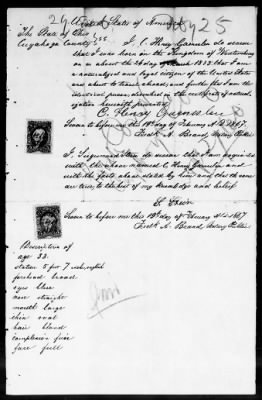 United States of America
The State of Ohio
Cuyahoga County } ss. I, C. Henry Gaensslen do swear
that I was born in the Kingdom of Wurtemberg
on or about the 24 day of March 1833 that I am
a naturalized and legal citizen of the United States
and about to travel abroad, and further that I am the
identical person described in the certificate of natural-
ization herewith presented
C. Henry Gaensslen
Sworn to before me this 18th day of February A.D. 1867.
Fredk A. Brand, Notary Public
I, do swear that I am acquain-
ted with the above named C. Henry Gaensslen and
with the facts above stated by him and that the same
are true, to the best of my knowledge and belief
S. Stein
Sworn to before me this 18th day of February A.D. 1867
Fredk A. Brand, Notary Public
Description of
age 33.
stature 5 feet 7 inch, english
forehead broad
eyes blue
nose straight
mouth large
chin oval
hair blond
complexion fair
face full